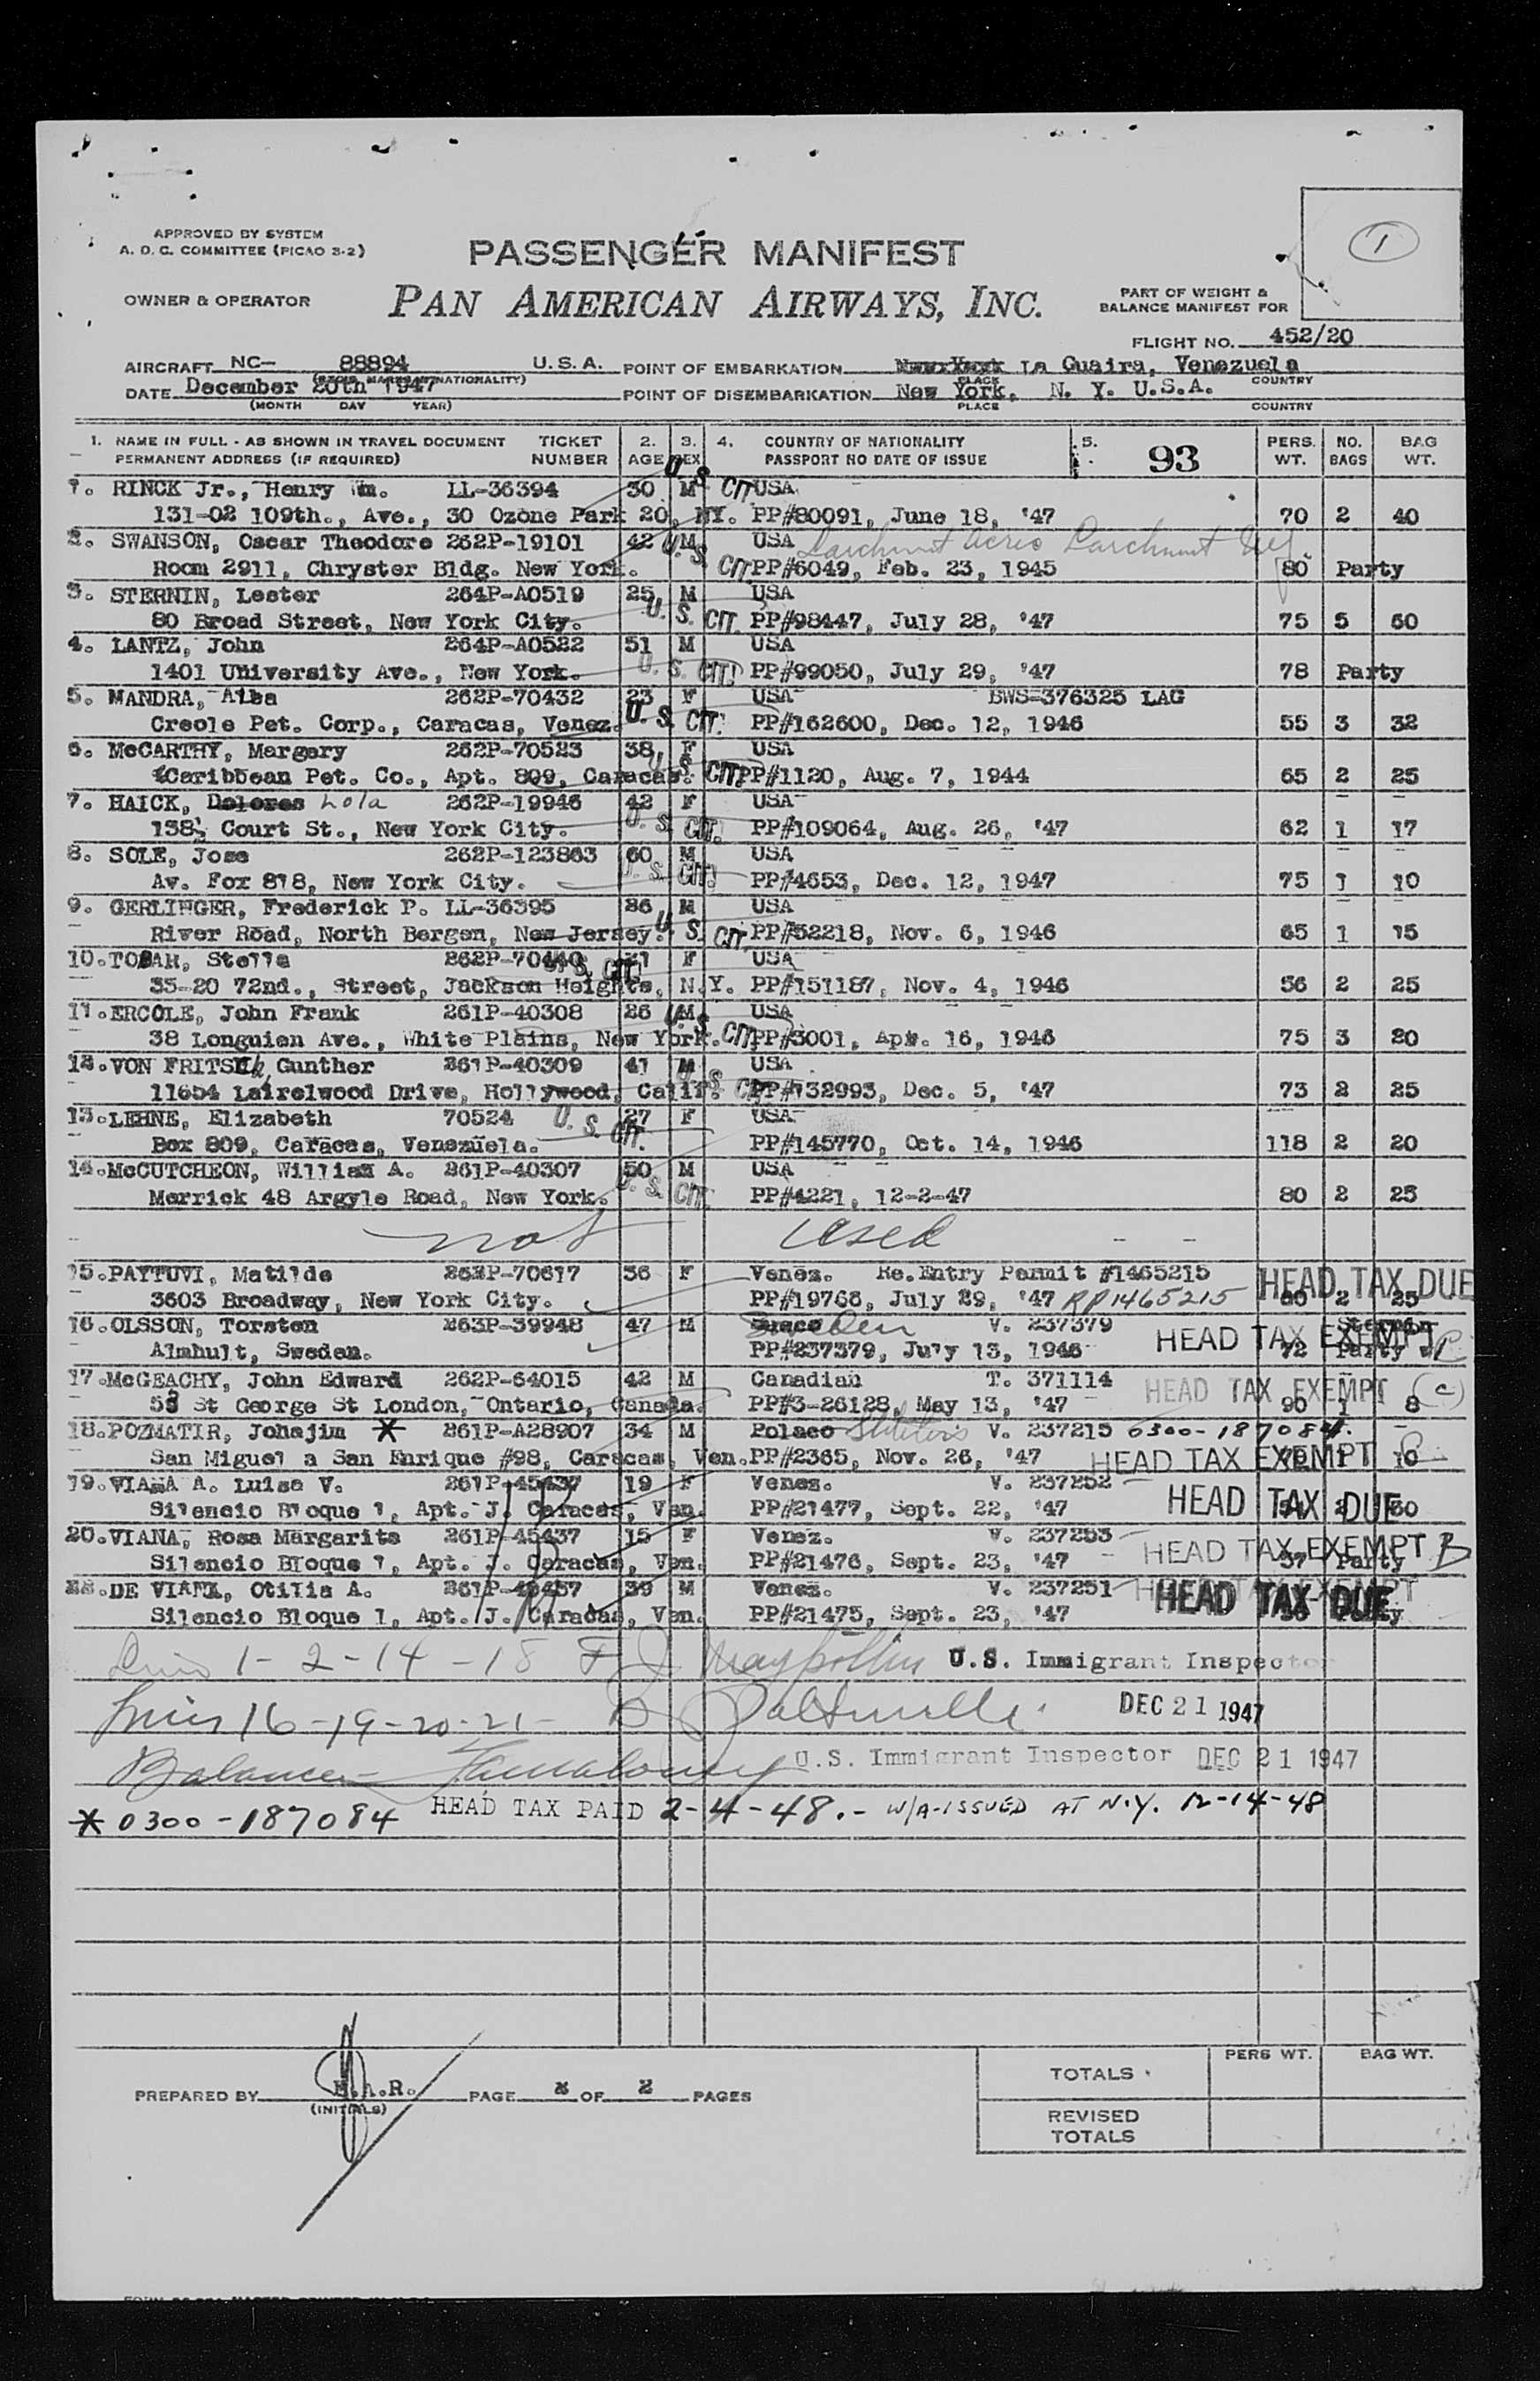 APPROVED BY SYSTEM
A. O. C. COMMITTEE (PICAO 3-2)
PASSENGER MANIFEST
1
OWNER & OPERATOR
PAN AMERICAN AIRWAYS, INC.
PART OF WEIGHT &
BALANCE MANIFEST FOR
FLIGHT NO. 452/20
AIRCRAFT NC- 88894 U.S.A. POINT OF EMBARKATION New York La Guaira, Venezuela
DATE December 20th 1947 POINT OF DISEMBARKATION New York, N. Y. U.S.A.
(MONTH DAY YEAR) PLACE COUNTRY
1. NAME IN FULL - AS SHOWN IN TRAVEL DOCUMENT TICKET 2. 3. 4. COUNTRY OF NATIONALITY 5. 93 PERS. NO. BAG
PERMANENT ADDRESS (IF REQUIRED) NUMBER AGE SEX PASSPORT NO DATE OF ISSUE WT. BAGS WT.
1. RINCK Jr., Henry Wm. LL-36394 30 M U.S. CIT USA
131-02 109th., Ave., 30 Ozone Park 20, NY. PP#80091, June 18, '47 70 2 40
2. SWANSON, Oscar Theodore 262P-19101 42 M USA Larchmont Acres Larchmont
Room 2911, Chryster Bldg. New York. U.S. CIT. PP#6049, Feb. 23, 1945 80 Party
3. STERNIN, Lester 264P-A0519 25 M USA
80 Broad Street, New York City. U.S. CIT. PP#98447, July 28, '47 75 5 60
4. LANTZ, John 264P-A0522 51 M USA
1401 University Ave., New York. U.S. CIT. PP#99050, July 29, '47 78 Party
5. MANDRA, Alba 262P-70432 23 F USA BWS-376325 LAG
Creole Pet. Corp., Caracas, Venez. U.S. CIT. PP#162600, Dec. 12, 1946 55 3 32
6. McCARTHY, Margery 262P-70523 38 F USA
Caribbean Pet. Co., Apt. 809, Caracas. U.S. CIT. PP#1120, Aug. 7, 1944 65 2 25
7. HAICK, Dolores Lola 262P-19946 42 F USA
138 Court St., New York City. U.S. CIT. PP#109064, Aug. 26, '47 62 1 17
8. SOLE, Jose 262P-123863 60 M USA
Av. Fox 818, New York City. U.S. CIT. PP#4653, Dec. 12, 1947 75 1 10
9. GERLINGER, Frederick P. LL-36395 86 M USA
River Road, North Bergen, New Jersey. U.S. CIT. PP#52218, Nov. 6, 1946 65 1 15
10. TOBAH, Stella 262P-70440 U.S. CIT. F USA
35-20 72nd., Street, Jackson Heights, N.Y. PP#151187, Nov. 4, 1946 56 2 25
11. ERCOLE, John Frank 261P-40308 26 M USA
38 Longuien Ave., White Plains, New York. U.S. CIT. PP#3001, Apr. 16, 1946 75 3 20
12. VON FRITSCh, Gunther 261P-40309 41 M USA
11654 Lairelwood Drive, Hollywood, Calif. U.S. CIT. PP#132993, Dec. 5, '47 73 2 25
13. LEHNE, Elizabeth 70524 U.S. CIT. 27 F USA
Box 809, Caracas, Venezuela. PP#145770, Oct. 14, 1946 118 2 20
14. McCUTCHEON, William A. 261P-40307 50 M USA
Merrick 48 Argyle Road, New York. U.S. CIT. PP#4221, 12-2-47 80 2 25
not used
15. PAYTUVI, Matilde 262P-70617 36 F Venez. Re.Entry Permit #1465215 HEAD TAX DUE
3603 Broadway, New York City. PP#19768, July 29, '47 RP1465215 60 2 25
16. OLSSON, Torsten 263P-39948 47 M Sueco Sweden V. 237379 HEAD TAX EXEMPT Sternin
Almhult, Sweden. PP#237379, July 13, 1946 72 Party
17. McGEACHY, John Edward 262P-64015 42 M Canadian T. 371114 HEAD TAX EXEMPT (C)
53 St George St London, Ontario, Canada. PP#3-26128, May 13, '47 90 1 8
18. POZMATIR, Johajim * 261P-A28907 34 M Polaco Stateless V. 237215 0300-187084.
San Miguel a San Enrique #98, Caracas, Ven. PP#2365, Nov. 26, '47 HEAD TAX EXEMPT 10
19. VIANA A. Luisa V. 261P-45437 19 F Venez. V. 237252 HEAD TAX DUE
Silencio Bloque 1, Apt. J. Caracas, Ven. PP#21477, Sept. 22, '47 54 2 60
20. VIANA, Rosa Margarita 261P-45437 15 F Venez. V. 237253 HEAD TAX EXEMPT B
Silencio Bloque 1, Apt. J. Caracas, Ven. PP#21476, Sept. 23, '47 57 Party
DE VIANA, Otilia A. 261P-45437 39 M Venez. V. 237251 HEAD TAX EXEMPT HEAD TAX DUE
Silencio Bloque 1, Apt. J. Caracas, Ven. PP#21475, Sept. 23, '47 Party
Lines 1-2-14-18 U.S. Immigrant Inspector
Lines 16-19-20-21- DEC 21 1947
Balance U.S. Immigrant Inspector DEC 21 1947
* 0300-187084 HEAD TAX PAID 2-4-48.- W/A-ISSUED AT N.Y. 12-14-48
PREPARED BY (INITIALS) PAGE OF 2 PAGES
PERS WT. BAG WT.
TOTALS
REVISED
TOTALS